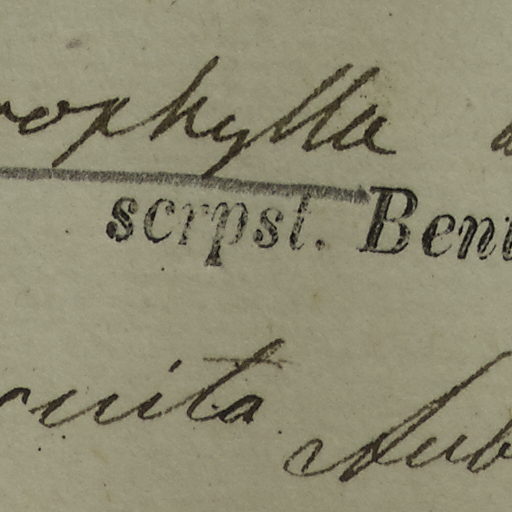 ophylla
scrpst. Ben
uita Aub